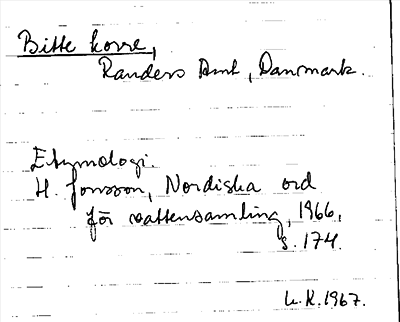 Bitte korre,
Randers Amt, Danmark.
Etymologi.
H. Jonsson, Nordiska ord
för vattensamling, 1966,
s. 174.
L.K. 1967.